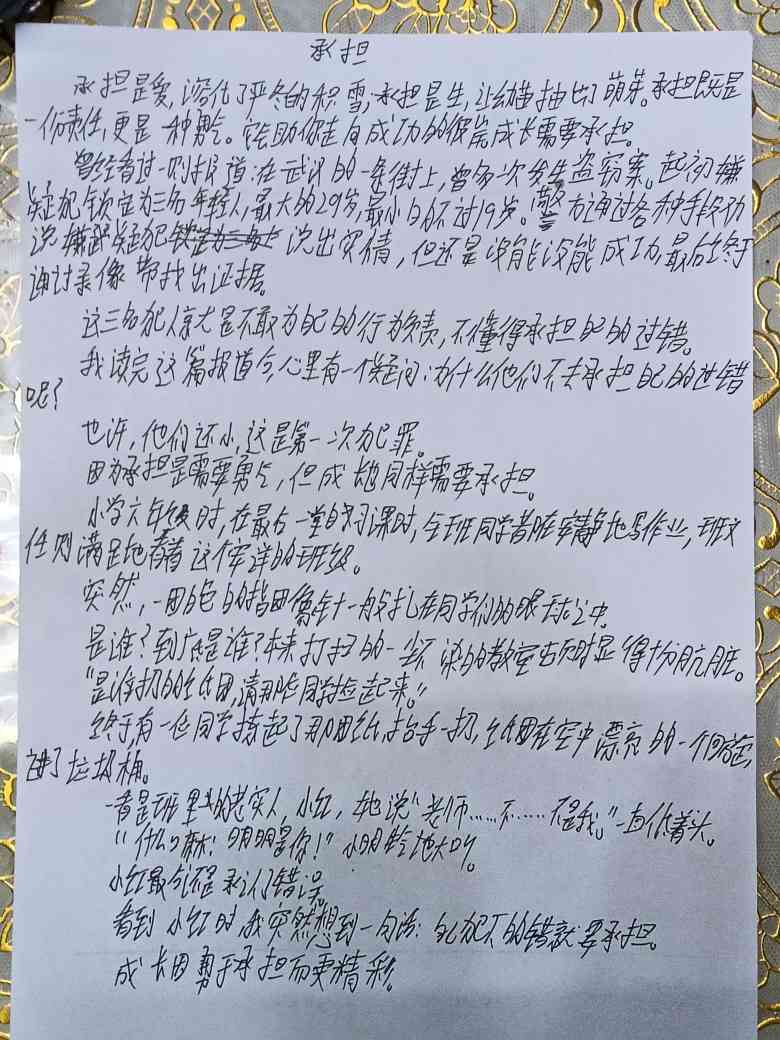 承担
承担是爱,溶化了严冬的积雪;承担是生,让幼苗抽出了萌芽。承担既是
一份责任,更是一种勇气。它能助你走向成功的彼岸成长需要承担。
曾经看过一则报道:在武汉的一条街上,曾多次发生盗窃案。起初嫌
疑犯锁定为三名年轻人,最大的29岁,最小的不过19岁。警方通过各种手段劝
说嫌疑犯说出实情,但还是没能没能成功,最后终于
通过录像带找出证据。
这三名犯人京尤是不敢为自己的行为负责,不懂得承担自己的过错。
我读完这篇报道今,心里有一个疑问:为什么他们不去承担自己的过错
呢?
也许,他们还小,这是第一次犯罪。
因为承担是需要勇气,但成长同样需要承担。
小学六年级时,在最后一堂自习课时,全班同学都在安静地写作业,班主
任则满足地看着这个安详的班级。
突然,一团白色的指团像针一般扎在同学们的眼球之中。
是谁?到底是谁?本来打扫的一尘不染的教室右页时显得十分肮脏。
“是谁扔的纸团,请那位同学捡起来。”
终于,有一位同学捡起了那团纸,抬手一扔,纸团在空中漂亮的一个回旋,
进了垃圾桶。
一看是班里的老实人,小红,她说“老师……不……不是我。”一直低着头。
“什么嘛!明明是你!”小明地大叫。
小红最今还是承认了错误。
看到小红时,我突然想到一句话:自己犯下的错就要承担。
成长因勇于承担而更精彩。